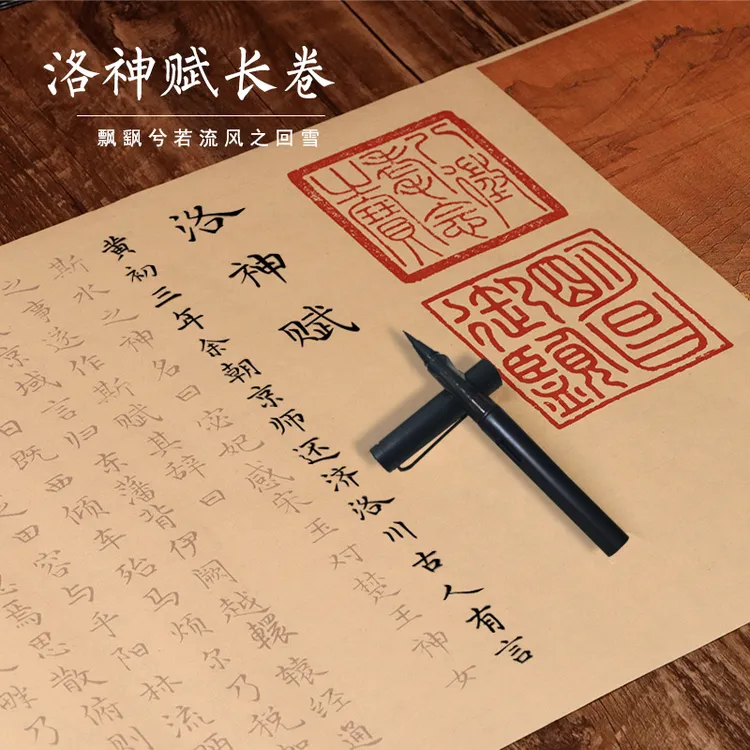 洛神赋长卷
飘飖兮若流风之回雪
八徵耄念之寶
明昌御覽
洛神赋
黄初三年余朝京师还济洛川古人有言
斯水之神名曰宓妃感宋玉对楚王神女
之事遂作斯赋其辞曰
京域言归东藩背伊阙越轘辕经通
日既西倾车殆马烦尔乃税驾
田容与乎阳林流眄
焉思散俯则
畔乃